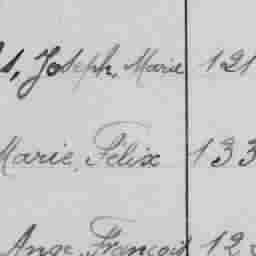 s, Joseph, Marie 121
Marie, Félix 133
Ange, François 12